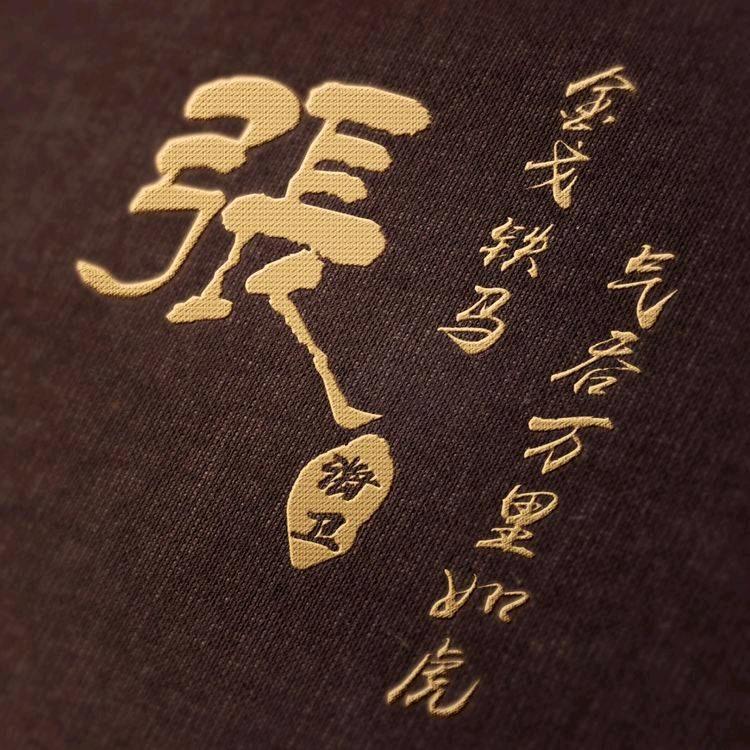 張
金戈铁马
气吞万里如虎